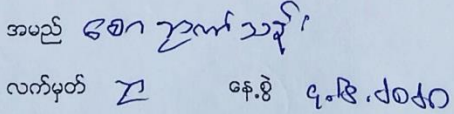 အမည် စော ဉာဏ် သန့်
လက်မှတ် ဉာ နေ့စွဲ ၄.၆.၂၀၂၀